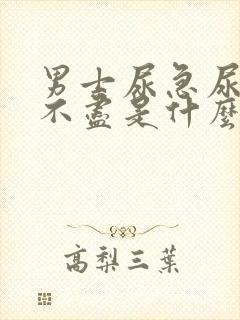 男士尿急尿
不盡是什麼
高梨三葉